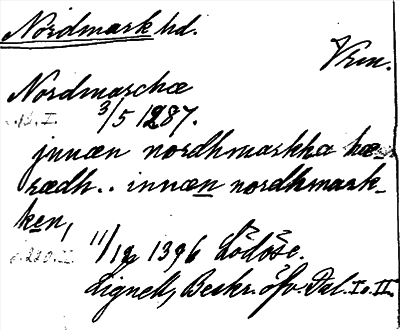 Nordmark hd.
Vrm.
Nordmarchæ
3/5 1287.
jnnæn nordhmarkha hæ-
rædh.. innæn nordhmark-
ken,
11/12 1396 Lödöse.
Lignell, Beskr. öfv Dal. I o. II.